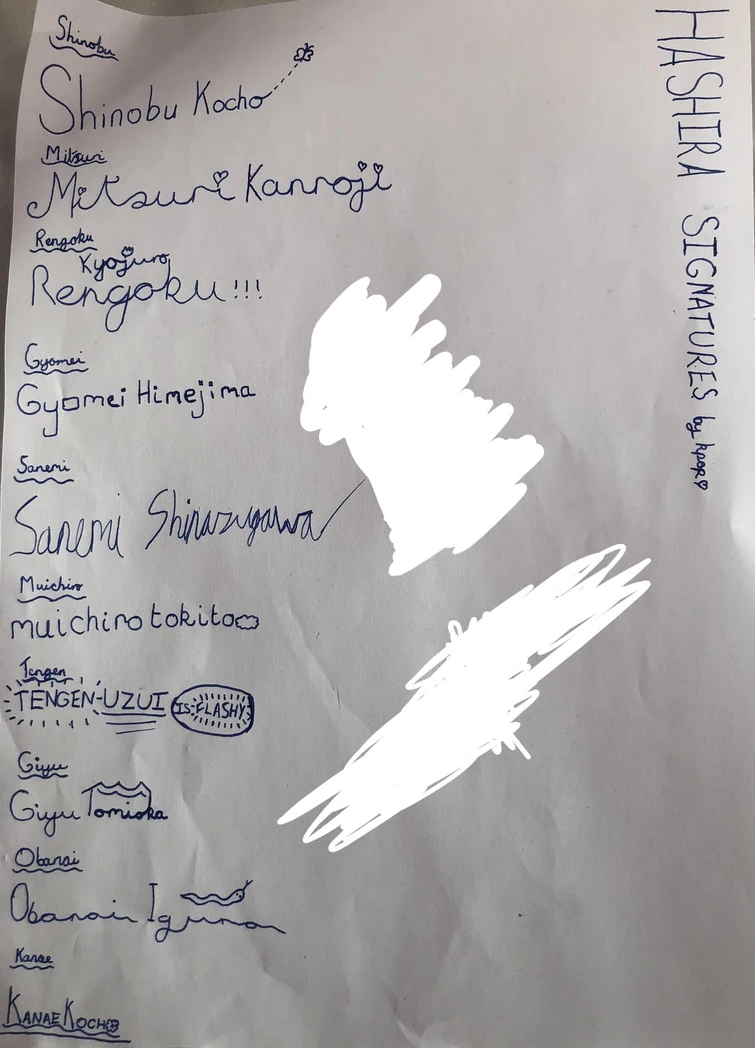 HASHIRA SIGNATURES by kpop
Shinobu
Shinobu Kocho
Mitsuri
Mitsuri Kanroji
Rengoku
Kyojuro
Rengoku!!!
Gyomei
Gyomei Himejima
Sanemi
Sanemi Shinazugawa
Muichiro
muichiro tokito
Tengen
TENGEN-UZUI IS FLASHY
Giyu
Giyu Tomioka
Obanai
Obanai Iguro
Kanae
KANAE KOCHO